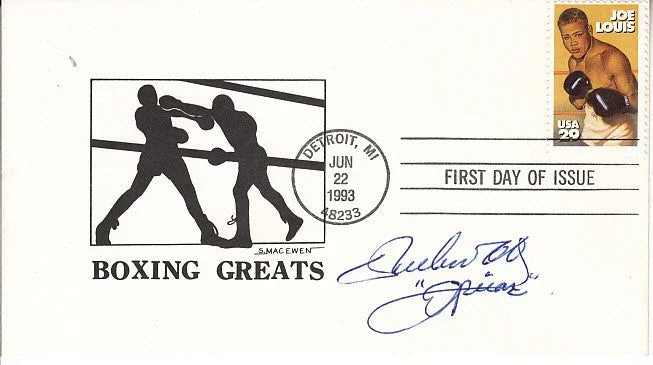 JOE
LOUIS
USA
29
DETROIT, MI
JUN
22
1993
48233
FIRST DAY OF ISSUE
S. MACEWEN
BOXING GREATS